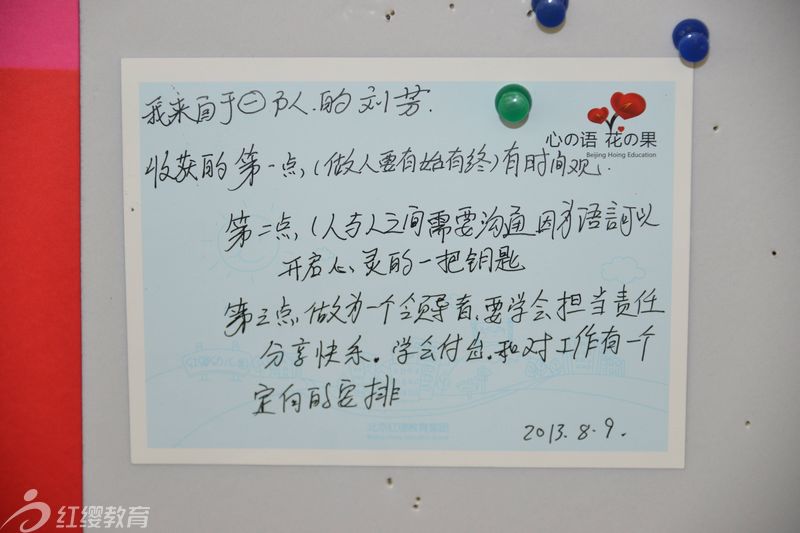 我来自于㊁队.的刘芳.
心の语 花の果
Beijing Hoing Education
收获的第一点,(做人要有始有终)有时间观.
第二点,(人与人之间需要沟通因为语言可以
开启心灵的一把钥匙
第三点,做为一个领导者,要学会担当责任
分享快乐。学会付出.和对工作有一个
定向的安排
北京红缨教育集团
2013.8.9.
红缨教育